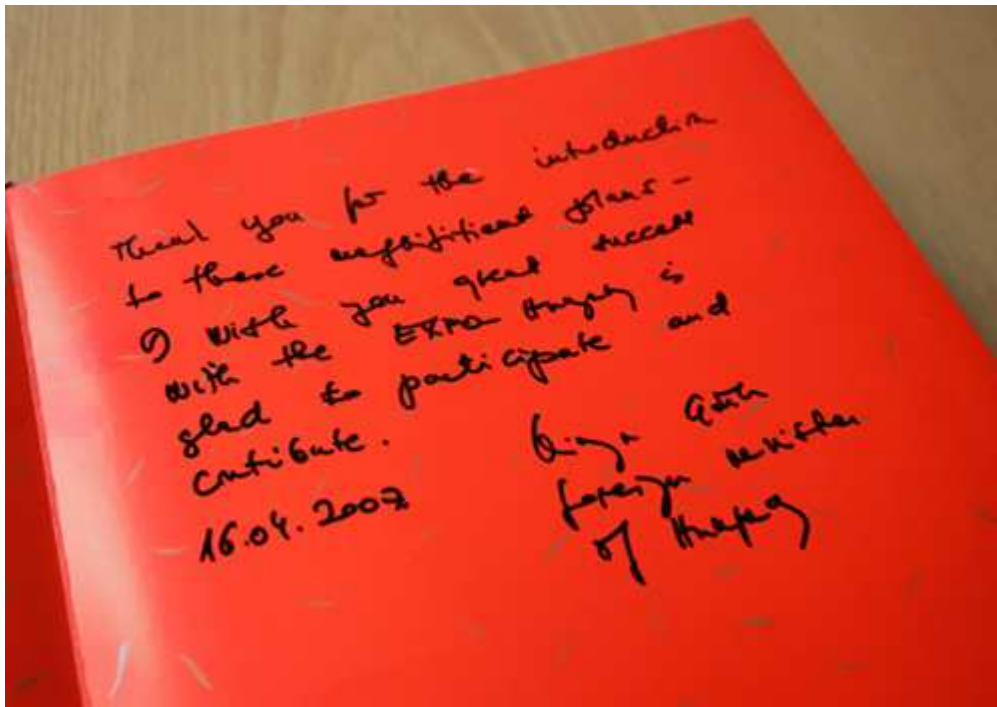 Thank you for the introduction
to these magnificient plans -
I wish you great success
with the EXPO Hungary is
glad to participate and
contribute.
16.04.2007
Kinga Göncz
foreign minister
of Hungary